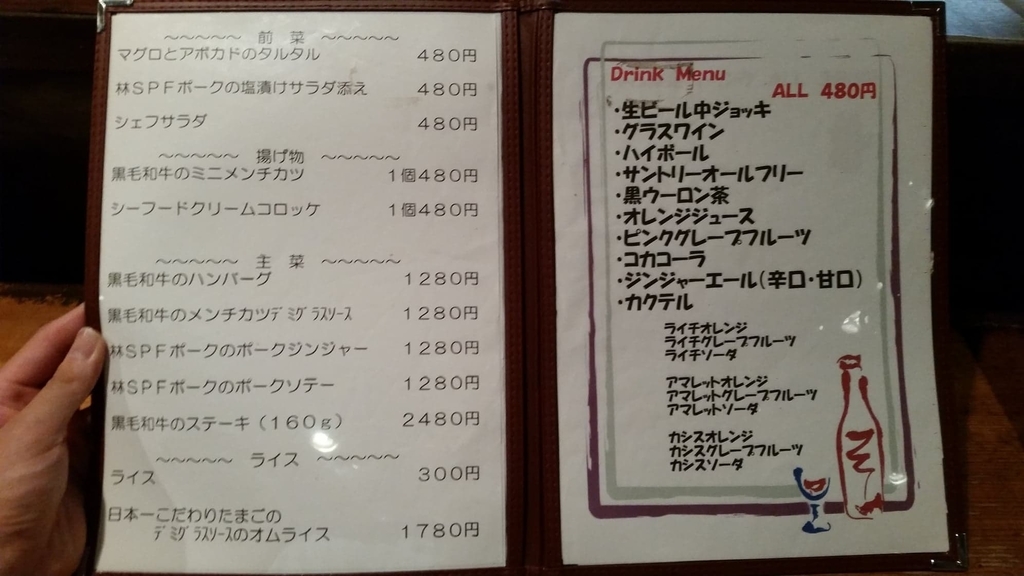 ～～～～～ 前 菜 ～～～～～
マグロとアボカドのタルタル 480円
林SPFポークの塩漬けサラダ添え 480円
シェフサラダ 480円
～～～～～ 揚げ物 ～～～～～
黒毛和牛のミニメンチカツ 1個480円
シーフードクリームコロッケ 1個480円
～～～～～ 主 菜 ～～～～～
黒毛和牛のハンバーグ 1280円
黒毛和牛のメンチカツﾃﾞﾐｸﾞﾗｽｿｰｽ 1280円
林SPFポークのポークジンジャー 1280円
林SPFポークのポークソテー 1280円
黒毛和牛のステーキ（160g） 2480円
～～～～～ ライス ～～～～～
ライス 300円
日本一こだわりたまごの
ﾃﾞﾐｸﾞﾗｽｿｰｽのオムライス 1780円
Drink Menu
ALL 480円
・生ビール中ジョッキ
・グラスワイン
・ハイボール
・サントリーオールフリー
・黒ウーロン茶
・オレンジジュース
・ピンクグレープフルーツ
・コカコーラ
・ジンジャーエール（辛口・甘口）
・カクテル
ライチオレンジ
ライチグレープフルーツ
ライチソーダ
アマレットオレンジ
アマレットグレープフルーツ
アマレットソーダ
カシスオレンジ
カシスグレープフルーツ
カシスソーダ